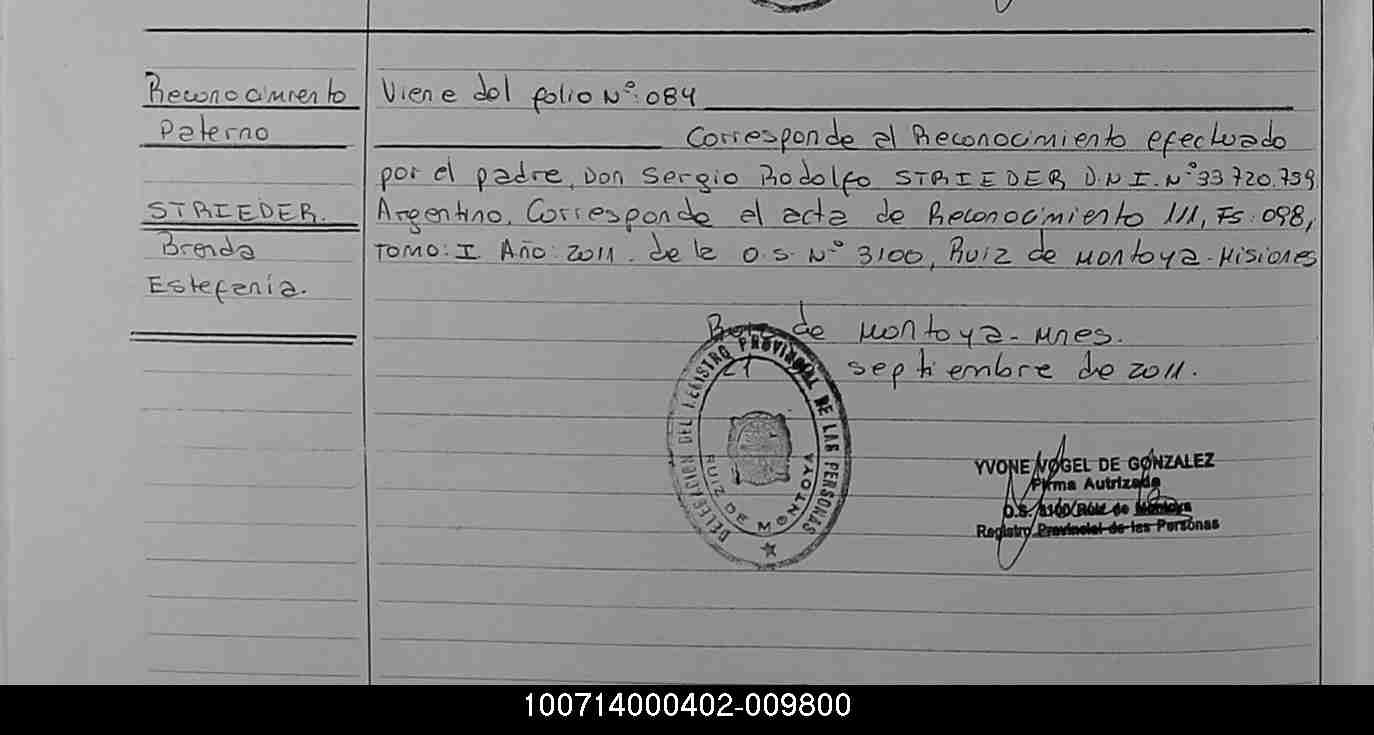 Reconocimiento
Paterno
STRIEDER.
Brenda
Estefanía.
Viene del folio N°: 084
Corresponde al Reconocimiento efectuado
por el padre, Don Sergio Rodolfo STRIEDER D.N.I. N° 33.720.739
Argentino. Corresponde el acta de Reconocimiento 111, Fs: 098,
TOMO: I Año: 2011. de la O.S. N° 3100, Ruiz de Montoya - Misiones
Ruiz de Montoya - Mnes.
21 septiembre de 2011.
DELEGACION DEL REGISTRO PROVINCIAL DE LAS PERSONAS
RUIZ DE MONTOYA
YVONE VOGEL DE GONZALEZ
Firma Autrizada
O.S. 3100 Ruiz de Montoya
Registro Provincial de las Personas
100714000402-009800